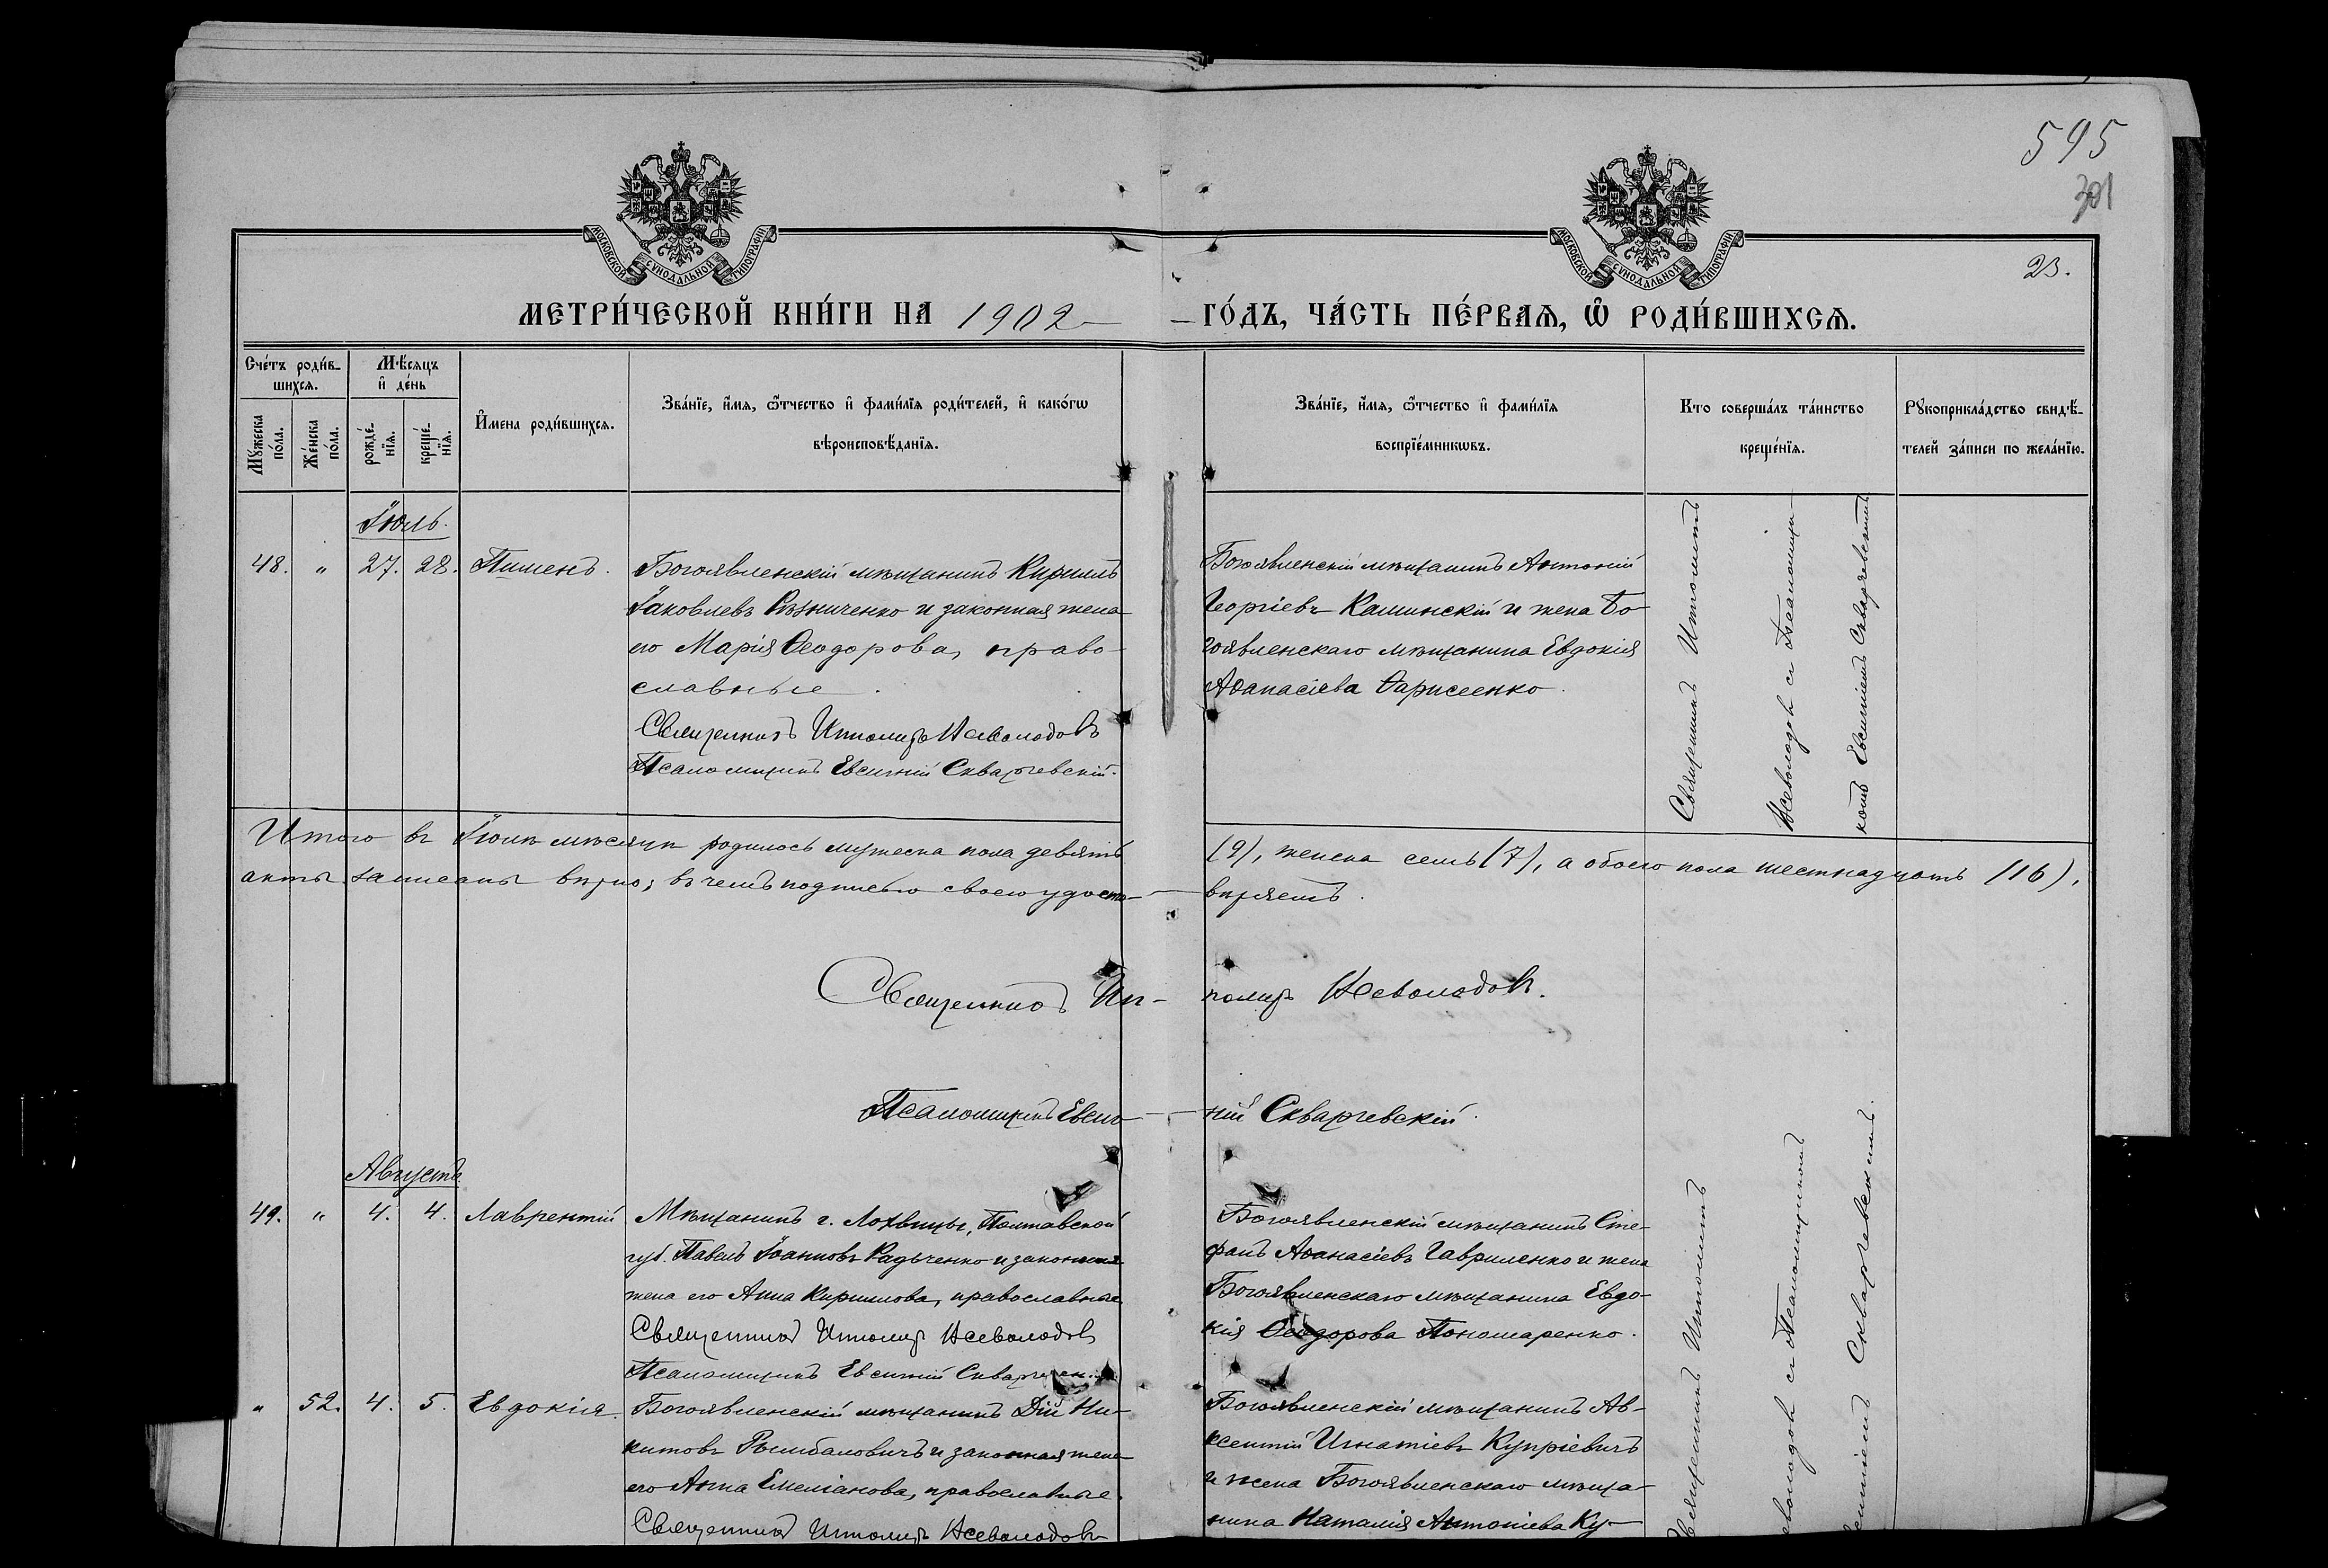 595
301
23.
МОСКОВСКОЙ СѴНОДАЛЬНОЙ ТИПОГРАФІИ
МОСКОВСКОЙ СѴНОДАЛЬНОЙ ТИПОГРАФІИ
МЕТРИ́ЧЕСКОЙ КНИ́ГИ НА 1902
ГО́ДЪ, ЧА́СТЬ ПЕ́РВАѦ, Ѽ РОДИ́ВШИХСѦ.
Сче́тъ роди́в-
шихсѧ.
Мѣ́сѧцъ
и҆ де́нь
Мꙋ́жеска
по́ла.
Же́нска
по́ла.
рожде́-
нїѧ.
креще́-
нїѧ.
И҆́мена роди́вшихсѧ.
Зва́нїе, и҆́мѧ, ѻ҆́тчество и҆ фами́лїѧ роди́телей, и҆ како́гѡ
вѣроисповѣ́данїѧ.
Зва́нїе, и҆́мѧ, ѻ҆́тчество и҆ фами́лїѧ
воспрїе́мникѡвъ.
Кто соверша́лъ та́инство
креще́нїѧ.
Рꙋкоприкла́дство свидѣ́-
телей за́писи по жела́нїю.
Іюль.
48. " 27. 28. Пименъ.
Богоявленскій мѣщанинъ Кириллъ
Іаковлевъ Рѣзниченко и законная жена
его Марія Ѳеодорова, право-
славные.
Священникъ Ипполитъ Всеволодовъ
Псаломщикъ Евсигній Скваржевскій.
Богоявленскій мѣщанинъ Антоній
Георгіевъ Каминскій и жена Бо-
гоявленскаго мѣщанина Евдокія
Аѳанасіева Фарисеенко.
Священникъ Ипполитъ
Всеволодовъ съ Псаломщи-
комъ Евсигніемъ Скваржевскимъ
Итого въ Іюлѣ мѣсяцѣ родилось мужеска пола девять
(9), женска семь (7), а обоего пола шестнадцать (16),
акты записаны вѣрно; въ чемъ подписью своею удосто-
вѣряемъ.
Священникъ Ип-
политъ Всеволодовъ.
Псаломщикъ Евсиг-
ній Скваржевскій.
Августъ.
49. " 4. 4. Лаврентій
Мѣщанинъ г. Лохвицы, Полтавской
губ. Павелъ Іоанновъ Радченко и законная
жена его Анна Кириллова, православные
Священникъ Ипполитъ Всеволодовъ
Псаломщикъ Евсигній
Богоявленскій мѣщанинъ Сте-
фанъ Аѳанасіевъ Гавриленко и жена
Богоявленскаго мѣщанина Евдо-
кія Ѳеодорова Пономаренко.
" 52. 4. 5. Евдокія.
Богоявленскій мѣщанинъ Дій Ни-
китовъ и законная жена
его Анна Емеліанова, православные.
Священникъ Ипполитъ Всеволодовъ
Богоявленскій мѣщанинъ Ав-
ксентій Игнатіевъ Купріевичъ
и жена Богоявленскаго мѣща-
нина Наталія Антоніева Ку-
Священникъ Ипполитъ
съ Псаломщикомъ
Скваржевскимъ.